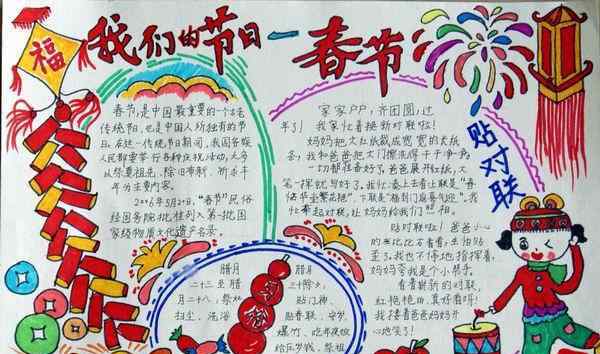 福
我们的节日—春节
春节,是中国最重要的一个古老
传统节日,也是中国人所独有的节
日。在这一传统节日期间,我国各族
人民都要举行各种庆祝活动,大多
以祭祀祖先、除旧布新、祈求丰
年为主要内容。
2006年5月20日,“春节”民俗
经国务院批准列入第一批国
家级物质文化遗产名录。
家家户户,齐团圆,过
年了!我家忙着换新对联啦!
妈妈把大红纸裁成宽宽的大纸
条,我和爸爸把大门擦洗得干干净净。
一切都准备好了。爸爸展开红纸,大
笔一挥就写好了。我忙
贴对联
贴对联啦!爸爸小心
我也不停地指挥着,
妈妈夸我是个小帮手。
看着崭新的对联,
红艳艳的,真好看呀!
我搂着爸爸妈妈开
心地笑了!
腊月
二十三至腊
月二十八,祭灶
扫尘、洗浴
腊月
三十除夕,
贴门神、
贴春联、守岁、
爆竹、吃年夜饭
给压岁钱、祭祖